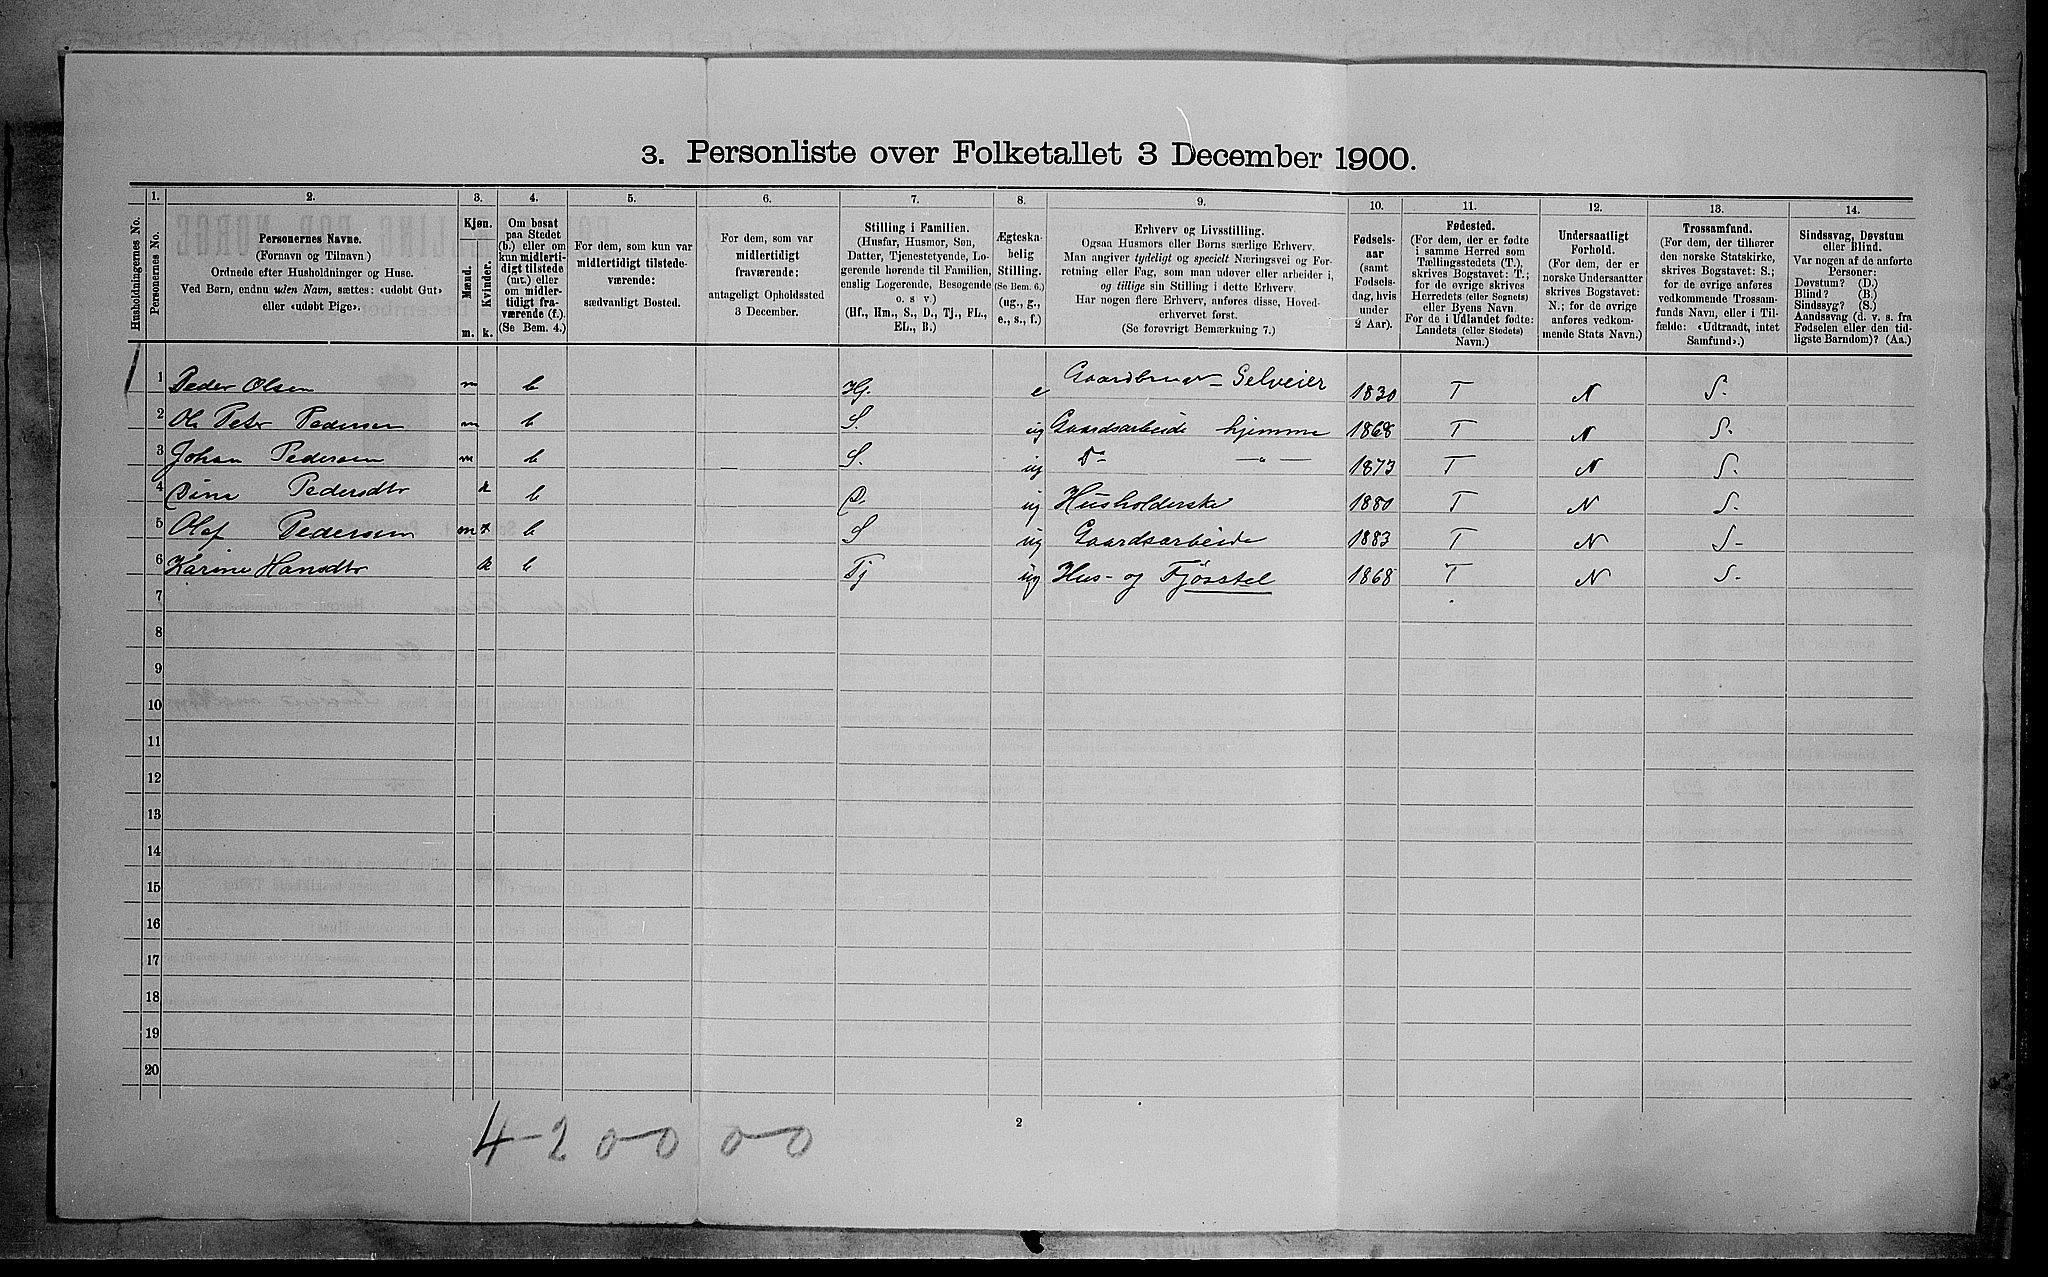 3. Personliste over Folketallet 3 December 1900.
1. 2. 3. 4. 5. 6. 7. 8. 9. 10. 11. 12. 13. 14.
Husholdningernes No.
Personernes No.
Personernes Navne.
(Fornavn og Tilnavn)
Ordnede efter Husholdninger og Huse.
Ved Børn, endnu uden Navn, sættes: «udøbt Gut»
eller «udøbt Pige».
Kjøn.
Mænd.
Kvinder.
m. k.
Om bosat
paa Stedet
(b.) eller om
kun midlerti-
digt tilstede
(mt.) eller
om midler-
tidigt fra-
værende (f.).
(Se Bem. 4.)
For dem, som kun var
midlertidigt tilstede-
værende:
sædvanligt Bosted.
For dem, som var
midlertidigt
fraværende:
antageligt Opholdssted
3 December.
Stilling i Familien.
(Husfar, Husmor, Søn,
Datter, Tjenestetyende, Lo-
gerende hørende til Familien,
enslig Logerende, Besøgende
o. s v.)
(Hf., Hm., S., D., Tj., FL.,
EL., B.)
Ægteska-
belig
Stilling.
(Se Bem. 6.)
(ug., g.,
e., s., f.)
Erhverv og Livsstilling.
Ogsaa Husmors eller Børns særlige Erhverv.
Man angiver tydeligt og specielt Næringsvei og For-
retning eller Fag, som man udøver eller arbeider i,
og tillige sin Stilling i dette Erhverv.
Har nogen flere Erhverv, anføres disse, Hoved-
erhvervet først.
(Se forøvrigt Bemærkning 7.)
Fødsels-
aar
(samt
Fødsels-
dag, hvis
under
2 Aar).
Fødested.
(For dem, der er fødte
i samme Herred som
Tællingsstedets (T.),
skrives Bogstavet: T.;
for de øvrige skrives
Herredets (eller Sognets)
eller Byens Navn.
For de i Udlandet fødte:
Landets (eller Stedets)
Navn.)
Undersaatligt
Forhold.
(For dem, der er
norske Undersaatter
skrives Bogstavet:
N.; for de øvrige
anføres vedkom-
mende Stats Navn.)
Trossamfund.
(For dem, der tilhører
den norske Statskirke,
skrives Bogstavet: S.;
for de øvrige anføres
vedkommende Trossam-
funds Navn, eller i Til-
fælde: «Udtraadt, intet
Samfund».)
Sindssvag, Døvstum
eller Blind.
Var nogen af de anførte
Personer:
Døvstum? (D.)
Blind? (B.)
Sindssyg? (S.)
Aandssvag (d. v. s. fra
Fødselen eller den tid-
ligste Barndom)? (Aa.)
1 1 Peder Olsen m b Hf. e Gaardbruger – Selveier 1830 T N S.
2 Ole Peter Pedersen m b S. ug Gaardsarbeide hjemme 1868 T N S.
3 Johan Pedersen m b S. ug Do — „ — 1873 T N S.
4 Dina Pedersdtr k b D. ug Husholderske 1880 T N S.
5 Olaf Pedersen m b S ug Gaardsarbeide 1883 T N S-
6 Karine Hansdtr k b Tj ug Hus- og Fjøsstel 1868 T N S-
7
8
9
10
11
12
13
14
15
16
17
18
19
20
2
4-2 0 0 0 0